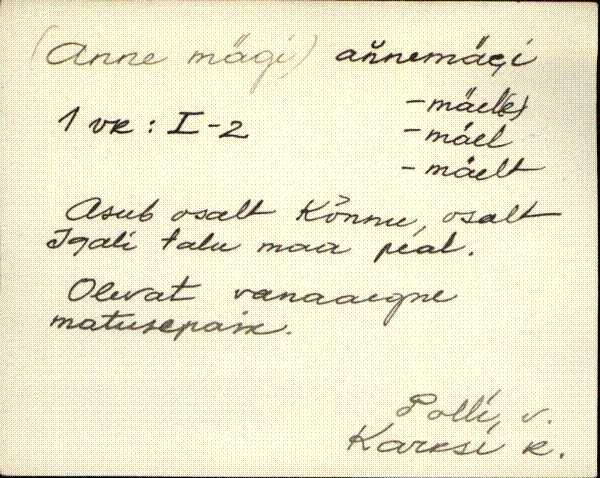 (Anne mägi) aňnemägi
-mäel(e)
1 vk : I-2
-mäel
-mäelt
Asub osalt Kõnnu, osalt
Igali talu maa peal.
Olevat vanaaegne
matusepaik.
Polli, v.
Karksi k.